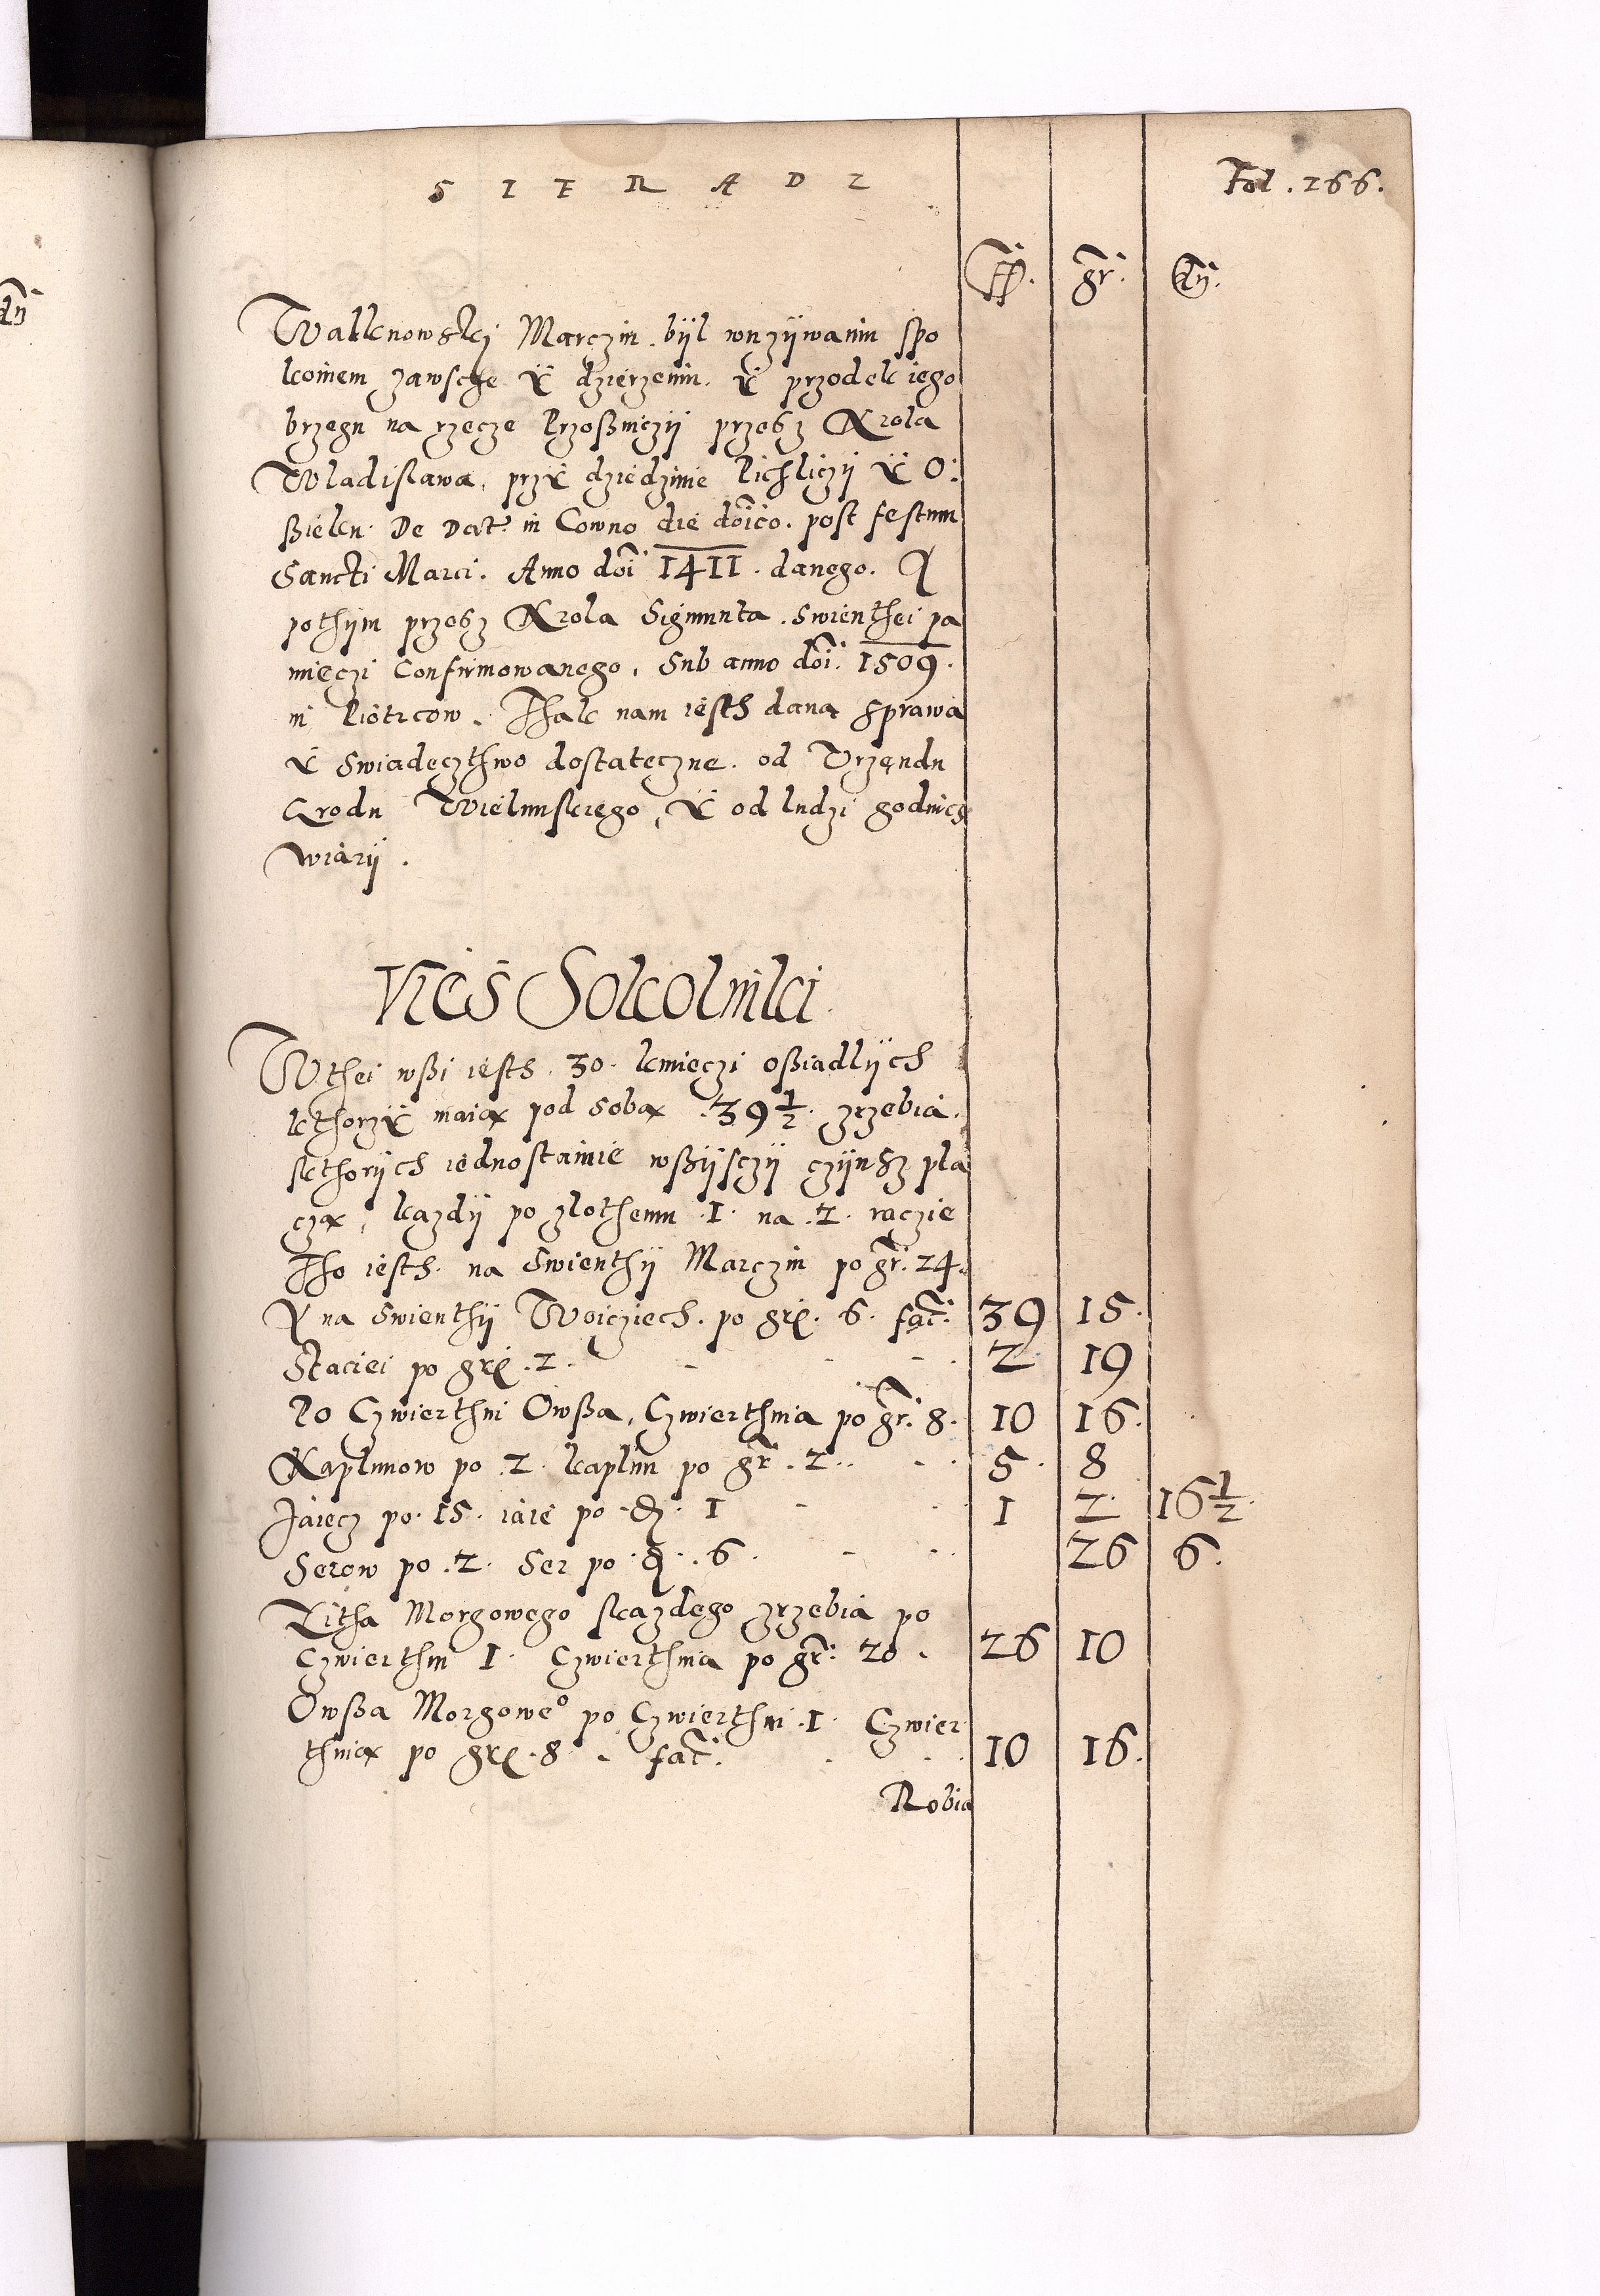 S I E R A D Z
Fol. 266.
ff. gr. dn.
Walknowskj Marczin. byl wuzywaniu spo
koinem zawsche Y dzierzeniu. Y przodek iego
brzegu na rzecze Przoßniczy przesz Krola
Wladislawa, przY dziedzinie Pichliczy Y O:
ßieku. De Dat. in Cowno die doico. post festum
Sancti Marci. Anno doi 1411. danego. A
pothym przesz Krola Sigmunta. Swienthei pa
mieczi Confirmowanego, Sub anno doi. 1509.
in Piotrcow. Thak nam iesth dana sprawa
Y Swiadecthwo dostateczne. od Vrzendu
Grodu Wielunskiego, Y od ludzi godnich
wiary.
Vies Sokolniki
Wthei wßi iesth. 30. kmieczi oßiadlych
kthorzY maia pod soba .39½. zrzebia.
skthorych iednostainie wßysczy czynsz pla
cza, kazdy po zlothemu .1. na .2. raczie
Tho iesth. na Swienthy Marczin po gr. 24.
A na Swienthy Woiciech. po gr. 6. fac. 39 15.
Staciei po gr. 2. - - - 2 19
Po Czwierthni Owßa, Czwierthnia po gr. 8. 10 16.
Kaplunow po .2. kaplun po gr. 2.. - - 5. 8
Jaiecz po. 15. iaie po d. 1 - - 1 2. 16½.
Serow po .2. Ser po d. .6. - - 26 6.
Zitha Morgowego skazdego zrzebia po
Czwierthni 1. Czwierthnia po gr. 20. 26 10
Owßa Morgoweo po Czwierthni .1. Czwier
thnia po gr. 8. fac. - - 10 16.
Robia